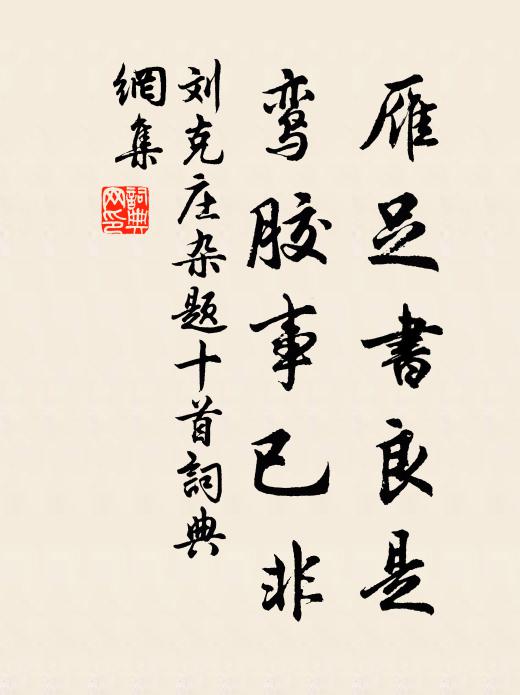 雁足書良是
鸾胶事已非
刘克庄杂题十首詞典
網集
詞典
网印